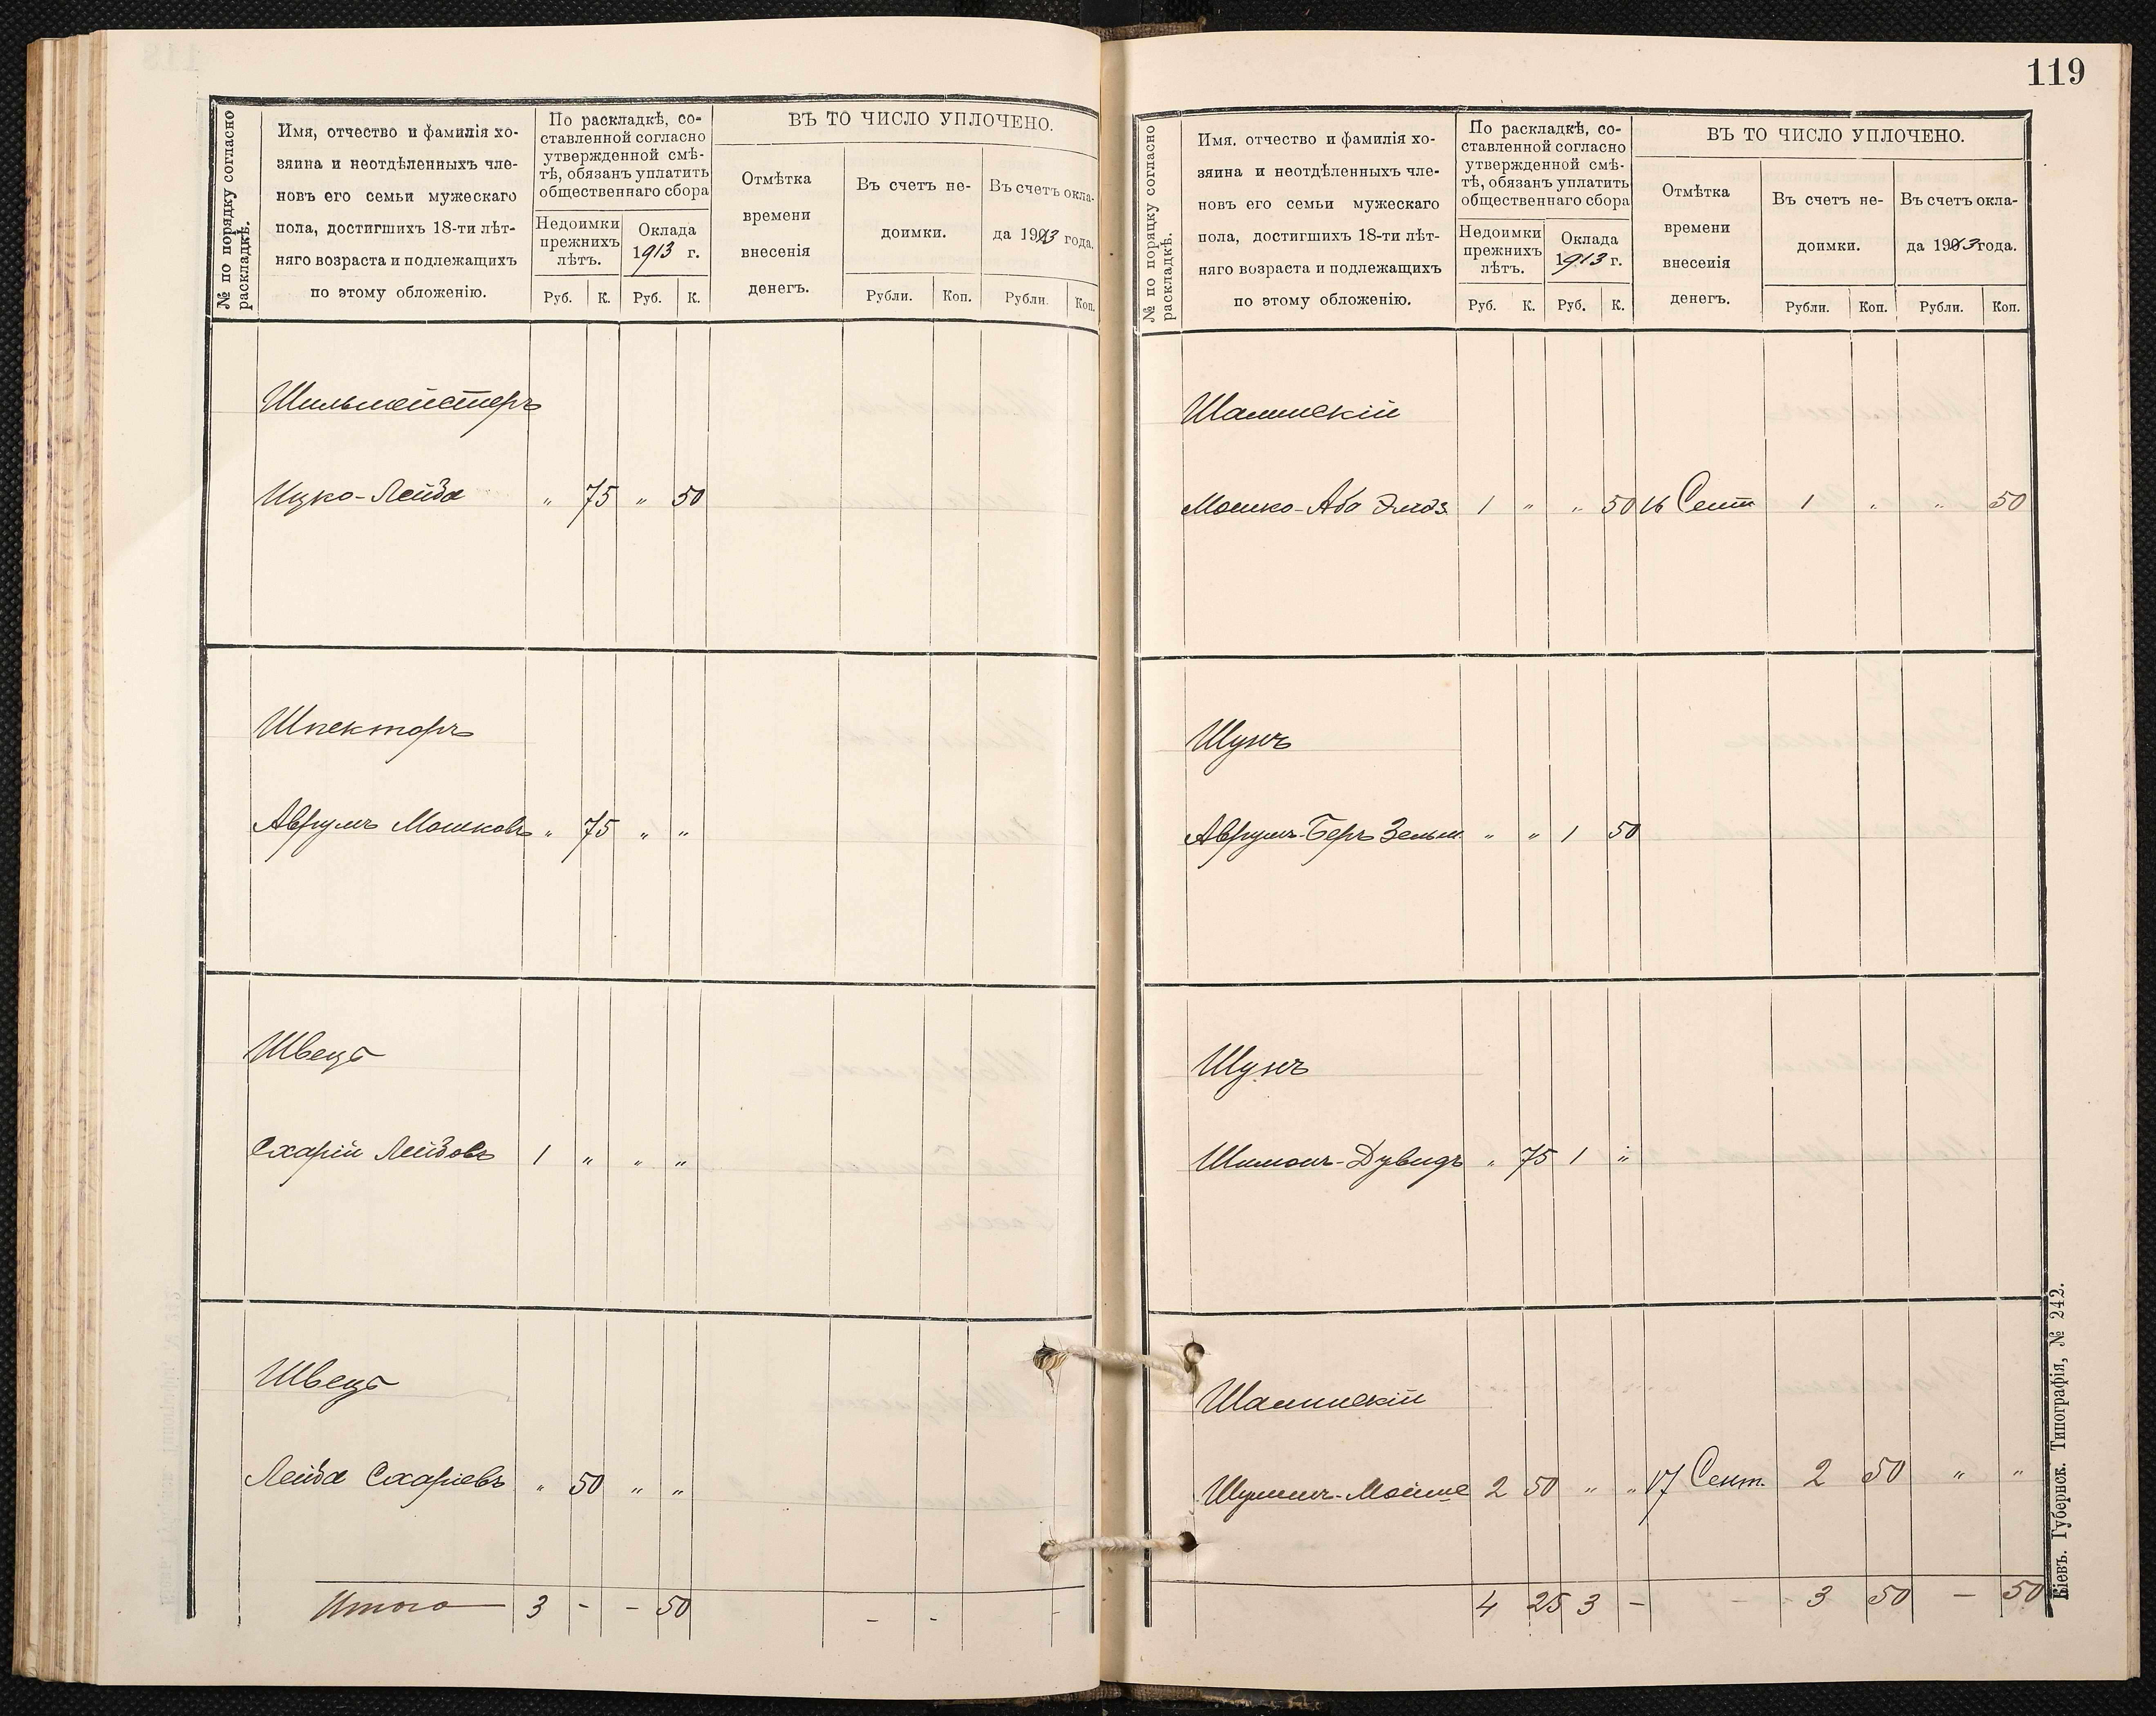 119
№ по порядку согласно
раскладкѣ.
Имя, отчество и фамилія хо-
зяина и неотдѣленныхъ чле-
новъ его семьи мужескаго
пола, достигшихъ 18-ти лѣт-
няго возраста и подлежащихъ
по этому обложенію.
По раскладкѣ, со-
ставленной согласно
утвержденной смѣ-
тѣ, обязанъ уплатить
общественнаго сбора
Недоимки
прежнихъ
лѣтъ.
Оклада
1913 г.
Руб. К. Руб. К.
ВЪ ТО ЧИСЛО УПЛОЧЕНО.
Отмѣтка
времени
внесенія
денегъ.
Въ счетъ не-
доимки.
Въ счетъ окла-
да 1913 года.
Рубли. Коп. Рубли. Коп.
Шильмейстеръ
Ицко-Лейба „ 75 „ 50
Шпекторъ
Аврумъ Мошковъ „ 75 „ „
Швецъ
Схарій Лейбовъ 1 „ „ „
Швецъ
Лейба Схаріевъ „ 50 „ „
Итого 3 - - 50 - - -
№ по порядку согласно
раскладкѣ.
Имя, отчество и фамилія хо-
зяина и неотдѣленныхъ чле-
новъ его семьи мужескаго
пола, достигшихъ 18-ти лѣт-
няго возраста и подлежащихъ
по этому обложенію.
По раскладкѣ, со-
ставленной согласно
утвержденной смѣ-
тѣ, обязанъ уплатить
общественнаго сбора
Недоимки
прежнихъ
лѣтъ.
Оклада
1913 г.
Руб. К. Руб. К.
ВЪ ТО ЧИСЛО УПЛОЧЕНО.
Отмѣтка
времени
внесенія
денегъ.
Въ счетъ не-
доимки.
Въ счетъ окла-
да 1913 года.
Рубли. Коп. Рубли. Коп.
Шамискій
Мошко-Аба 1 „ „ 50 16 Сент 1 „ „ 50
Шунъ
Аврумъ-Беръ Зельм. „ „ 1 50
Шунъ
Шимонъ-Дувидъ „ 75 1 „
Шаминскій
Шулимъ-Мойше 2 50 „ „ 17 Сент. 2 50 „ „
4 25 3 - - - 3 50 - 50
Кіевъ. Губернск. Типографія, № 242.